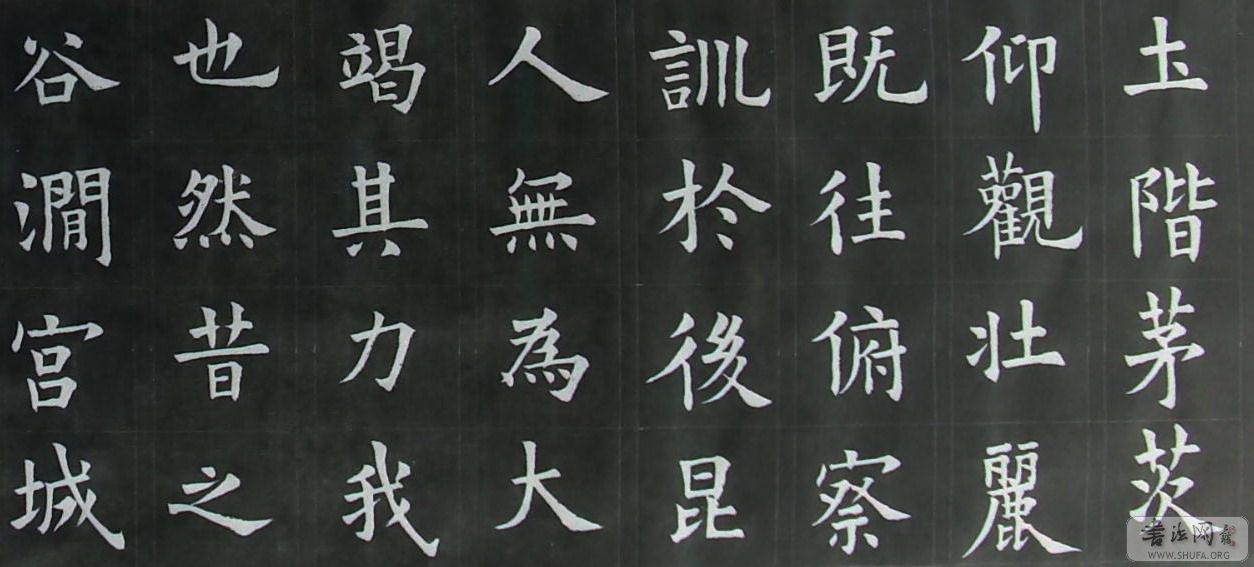 土階茅茨
仰觀壯麗
既往俯察
訓於後昆
人無為大
竭其力我
也然昔之
谷澗宮城
書法网
WWW.SHUFA.ORG